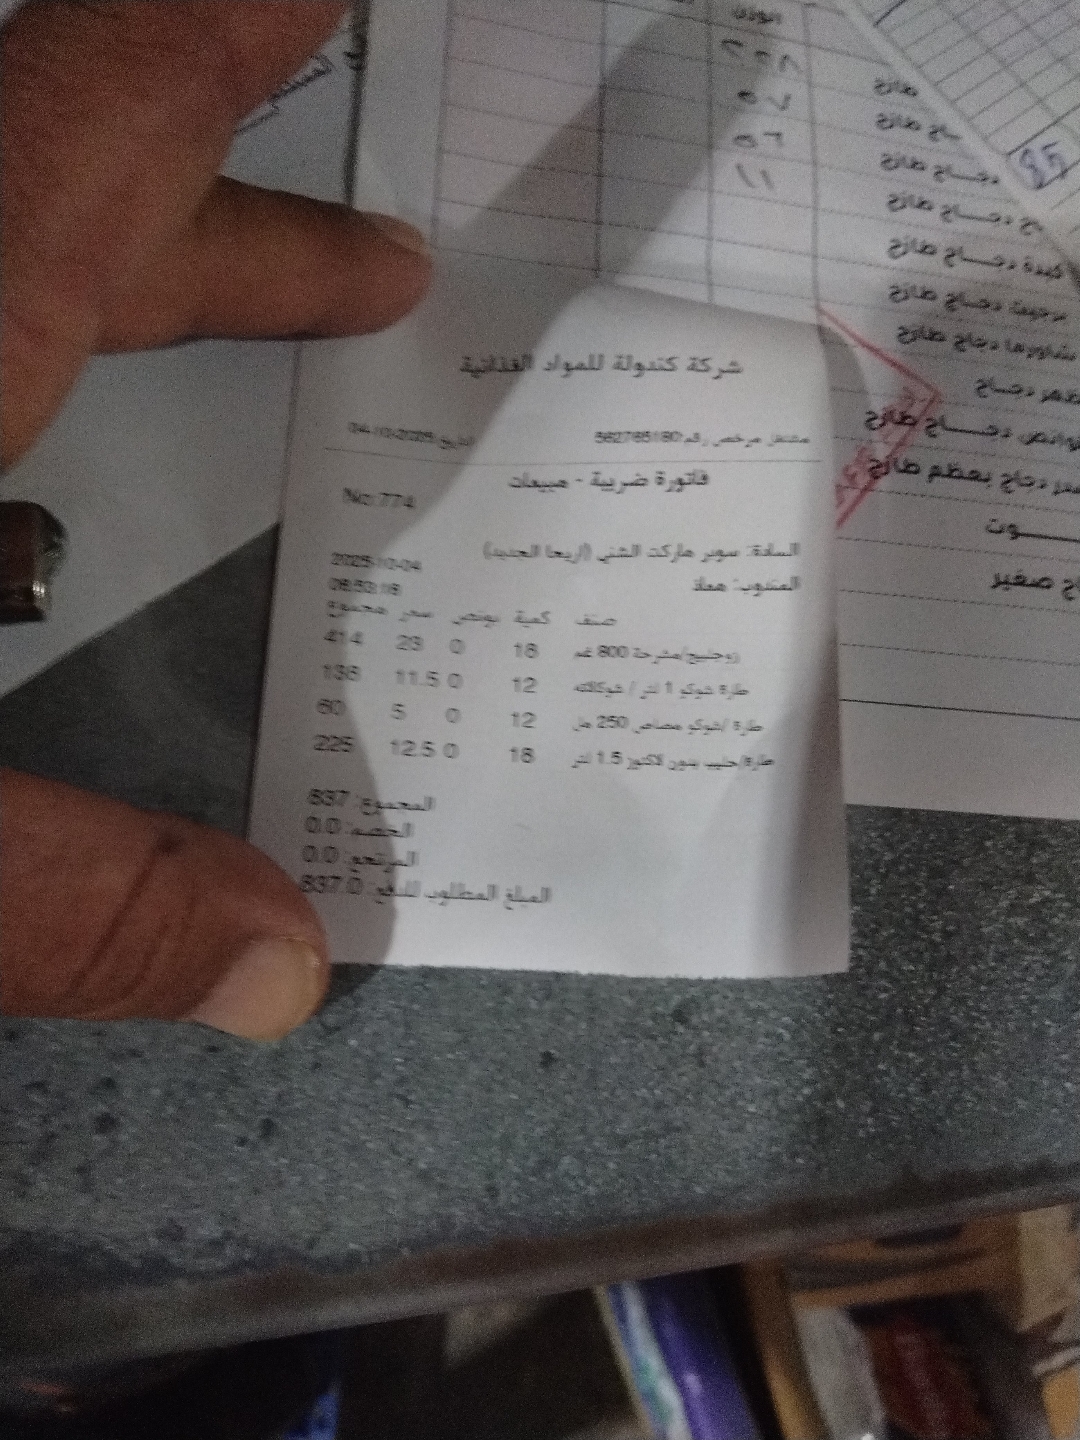 الوزن
٢٢٨
طازج
٥٧
طازج
٥٦
دجـــاج طازج
١١
دجـــاج طازج
كبدة دجـــاج طازج
طازج
شاورما دجاج طازج
دجـــاج
دجـــاج طازج
دجاج بعظم طازج
صغير
شركة كندولة للمواد الغذائية
مشتغل مرخص رقم:562765180 التاريخ:04-10-2025
فاتورة ضريبية - مبيعات
No:774
السادة: سوبر ماركت الشني (اريحا الجديد)
2025-10-04
المندوب: معاذ
08:53:16
صنف كمية بونص سعر مجموع
مشرحة 800 غم 18 0 23 414
طارة شوكو 1 لتر / شوكلاته 12 0 11.5 138
طارة /شوكو مصاص 250 مل 12 0 5 60
طارة/حليب بدون لاكتوز 1.5 لتر 18 0 12.5 225
المجموع: 837
الخصم: 0.0
المرتجع: 0.0
المبلغ المطلوب للدفع: 837.0